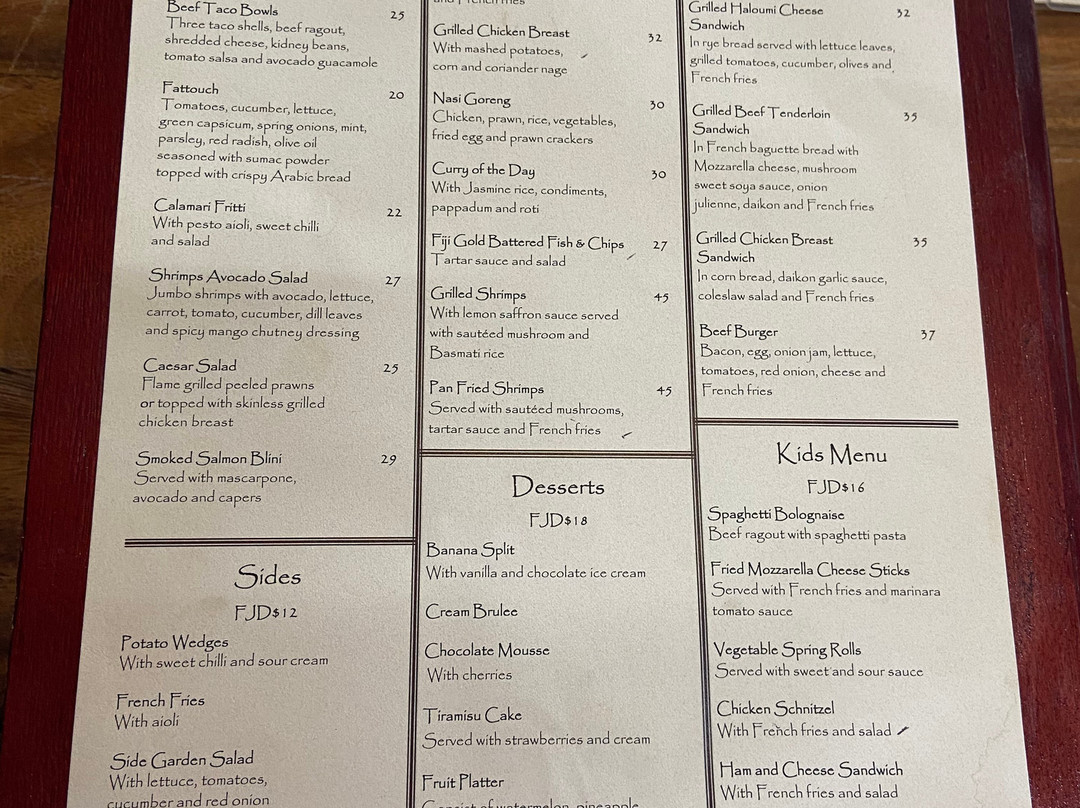 Beef Taco Bowls 25
Three taco shells, beef ragout,
shredded cheese, kidney beans,
tomato salsa and avocado guacamole
Fattouch 20
Tomatoes, cucumber, lettuce,
green capsicum, spring onions, mint,
parsley, red radish, olive oil
seasoned with sumac powder
topped with crispy Arabic bread
Calamari Fritti 22
With pesto aioli, sweet chilli
and salad
Shrimps Avocado Salad 27
Jumbo shrimps with avocado, lettuce,
carrot, tomato, cucumber, dill leaves
and spicy mango chutney dressing
Caesar Salad 25
Flame grilled peeled prawns
or topped with skinless grilled
chicken breast
Smoked Salmon Blini 29
Served with mascarpone,
avocado and capers
Sides
FJD$12
Potato Wedges
With sweet chilli and sour cream
French Fries
With aioli
Side Garden Salad
With lettuce, tomatoes,
cucumber and red onion
and French fries
Grilled Chicken Breast 32
With mashed potatoes,
corn and coriander nage
Nasi Goreng 30
Chicken, prawn, rice, vegetables,
fried egg and prawn crackers
Curry of the Day 30
With Jasmine rice, condiments,
pappadum and roti
Fiji Gold Battered Fish & Chips 27
Tartar sauce and salad
Grilled Shrimps 45
With lemon saffron sauce served
with sautéed mushroom and
Basmati rice
Pan Fried Shrimps 45
Served with sautéed mushrooms,
tartar sauce and French fries
Desserts
FJD$18
Banana Split
With vanilla and chocolate ice cream
Cream Brulee
Chocolate Mousse
With cherries
Tiramisu Cake
Served with strawberries and cream
Fruit Platter
Consist of watermelon, pineapple
Grilled Haloumi Cheese 32
Sandwich
In rye bread served with lettuce leaves,
grilled tomatoes, cucumber, olives and
French fries
Grilled Beef Tenderloin 35
Sandwich
In French baguette bread with
Mozzarella cheese, mushroom
sweet soya sauce, onion
julienne, daikon and French fries
Grilled Chicken Breast 35
Sandwich
In corn bread, daikon garlic sauce,
coleslaw salad and French fries
Beef Burger 37
Bacon, egg, onion jam, lettuce,
tomatoes, red onion, cheese and
French fries
Kids Menu
FJD$16
Spaghetti Bolognaise
Beef ragout with spaghetti pasta
Fried Mozzarella Cheese Sticks
Served with French fries and marinara
tomato sauce
Vegetable Spring Rolls
Served with sweet and sour sauce
Chicken Schnitzel
With French fries and salad
Ham and Cheese Sandwich
With French fries and salad